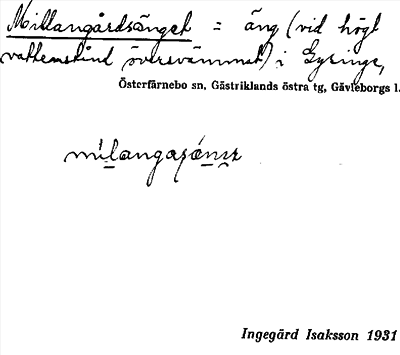 Mellangårdsänget = äng (vid högt
vattenstånd översvämmat) i Gysinge,
Österfärnebo sn, Gästriklands östra tg, Gävleborgs l.
Ingegärd Isaksson 1931